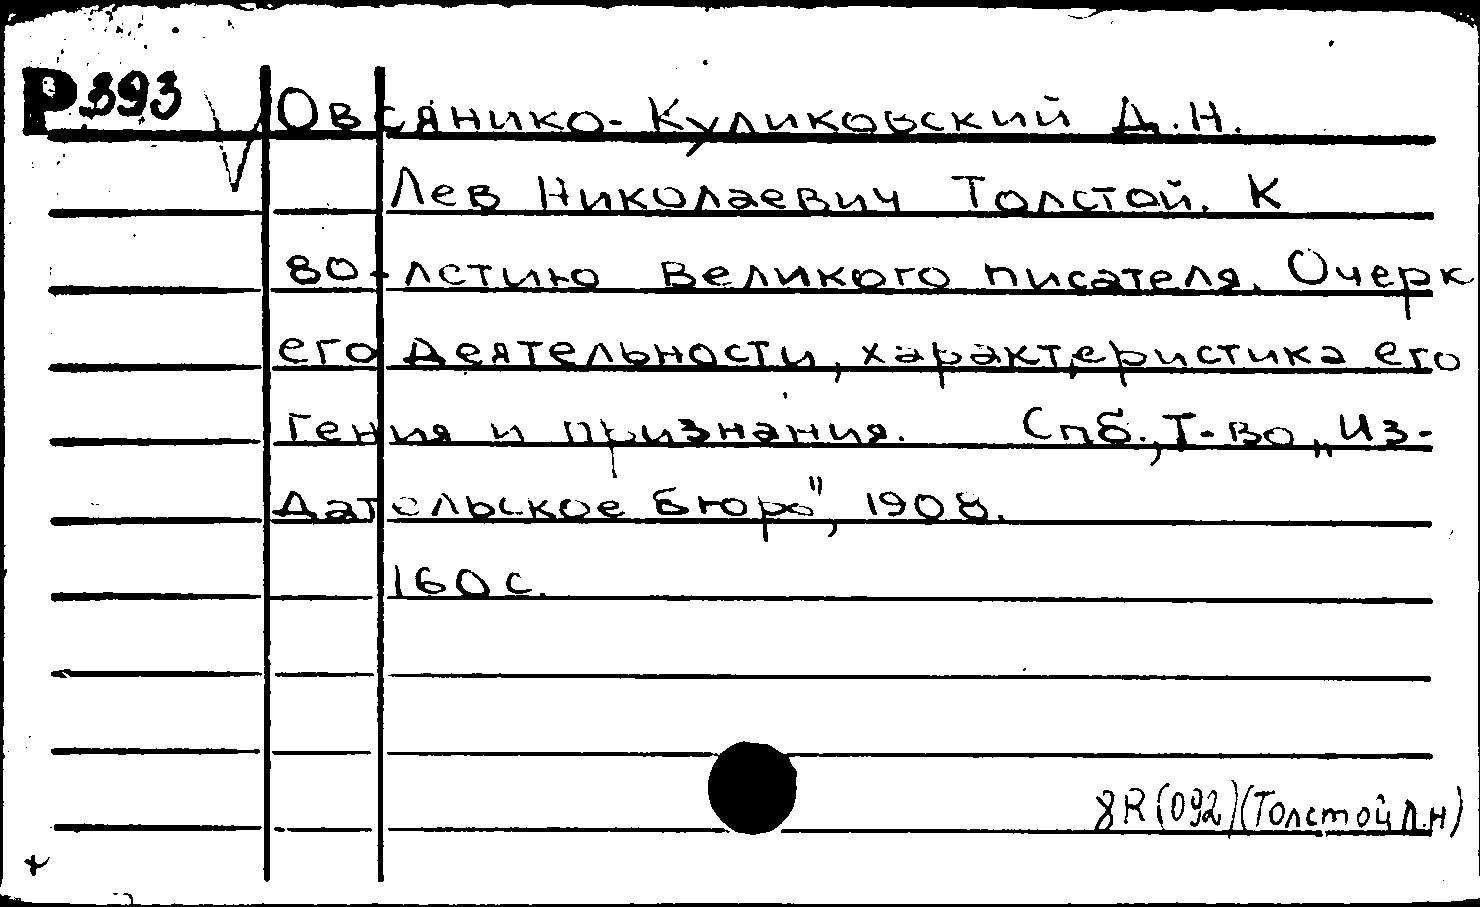 Р393 Овсянико-Куликовский Д.Н.
Лев Николаевич Толстой. К
80-лстию великого писателя. Очерк
его деятельности, характеристика его
гения и признания. Спб., Т-во „Из-
дательское бюро", 1908.
160 с.
8R(092)(Толстой Л.Н)